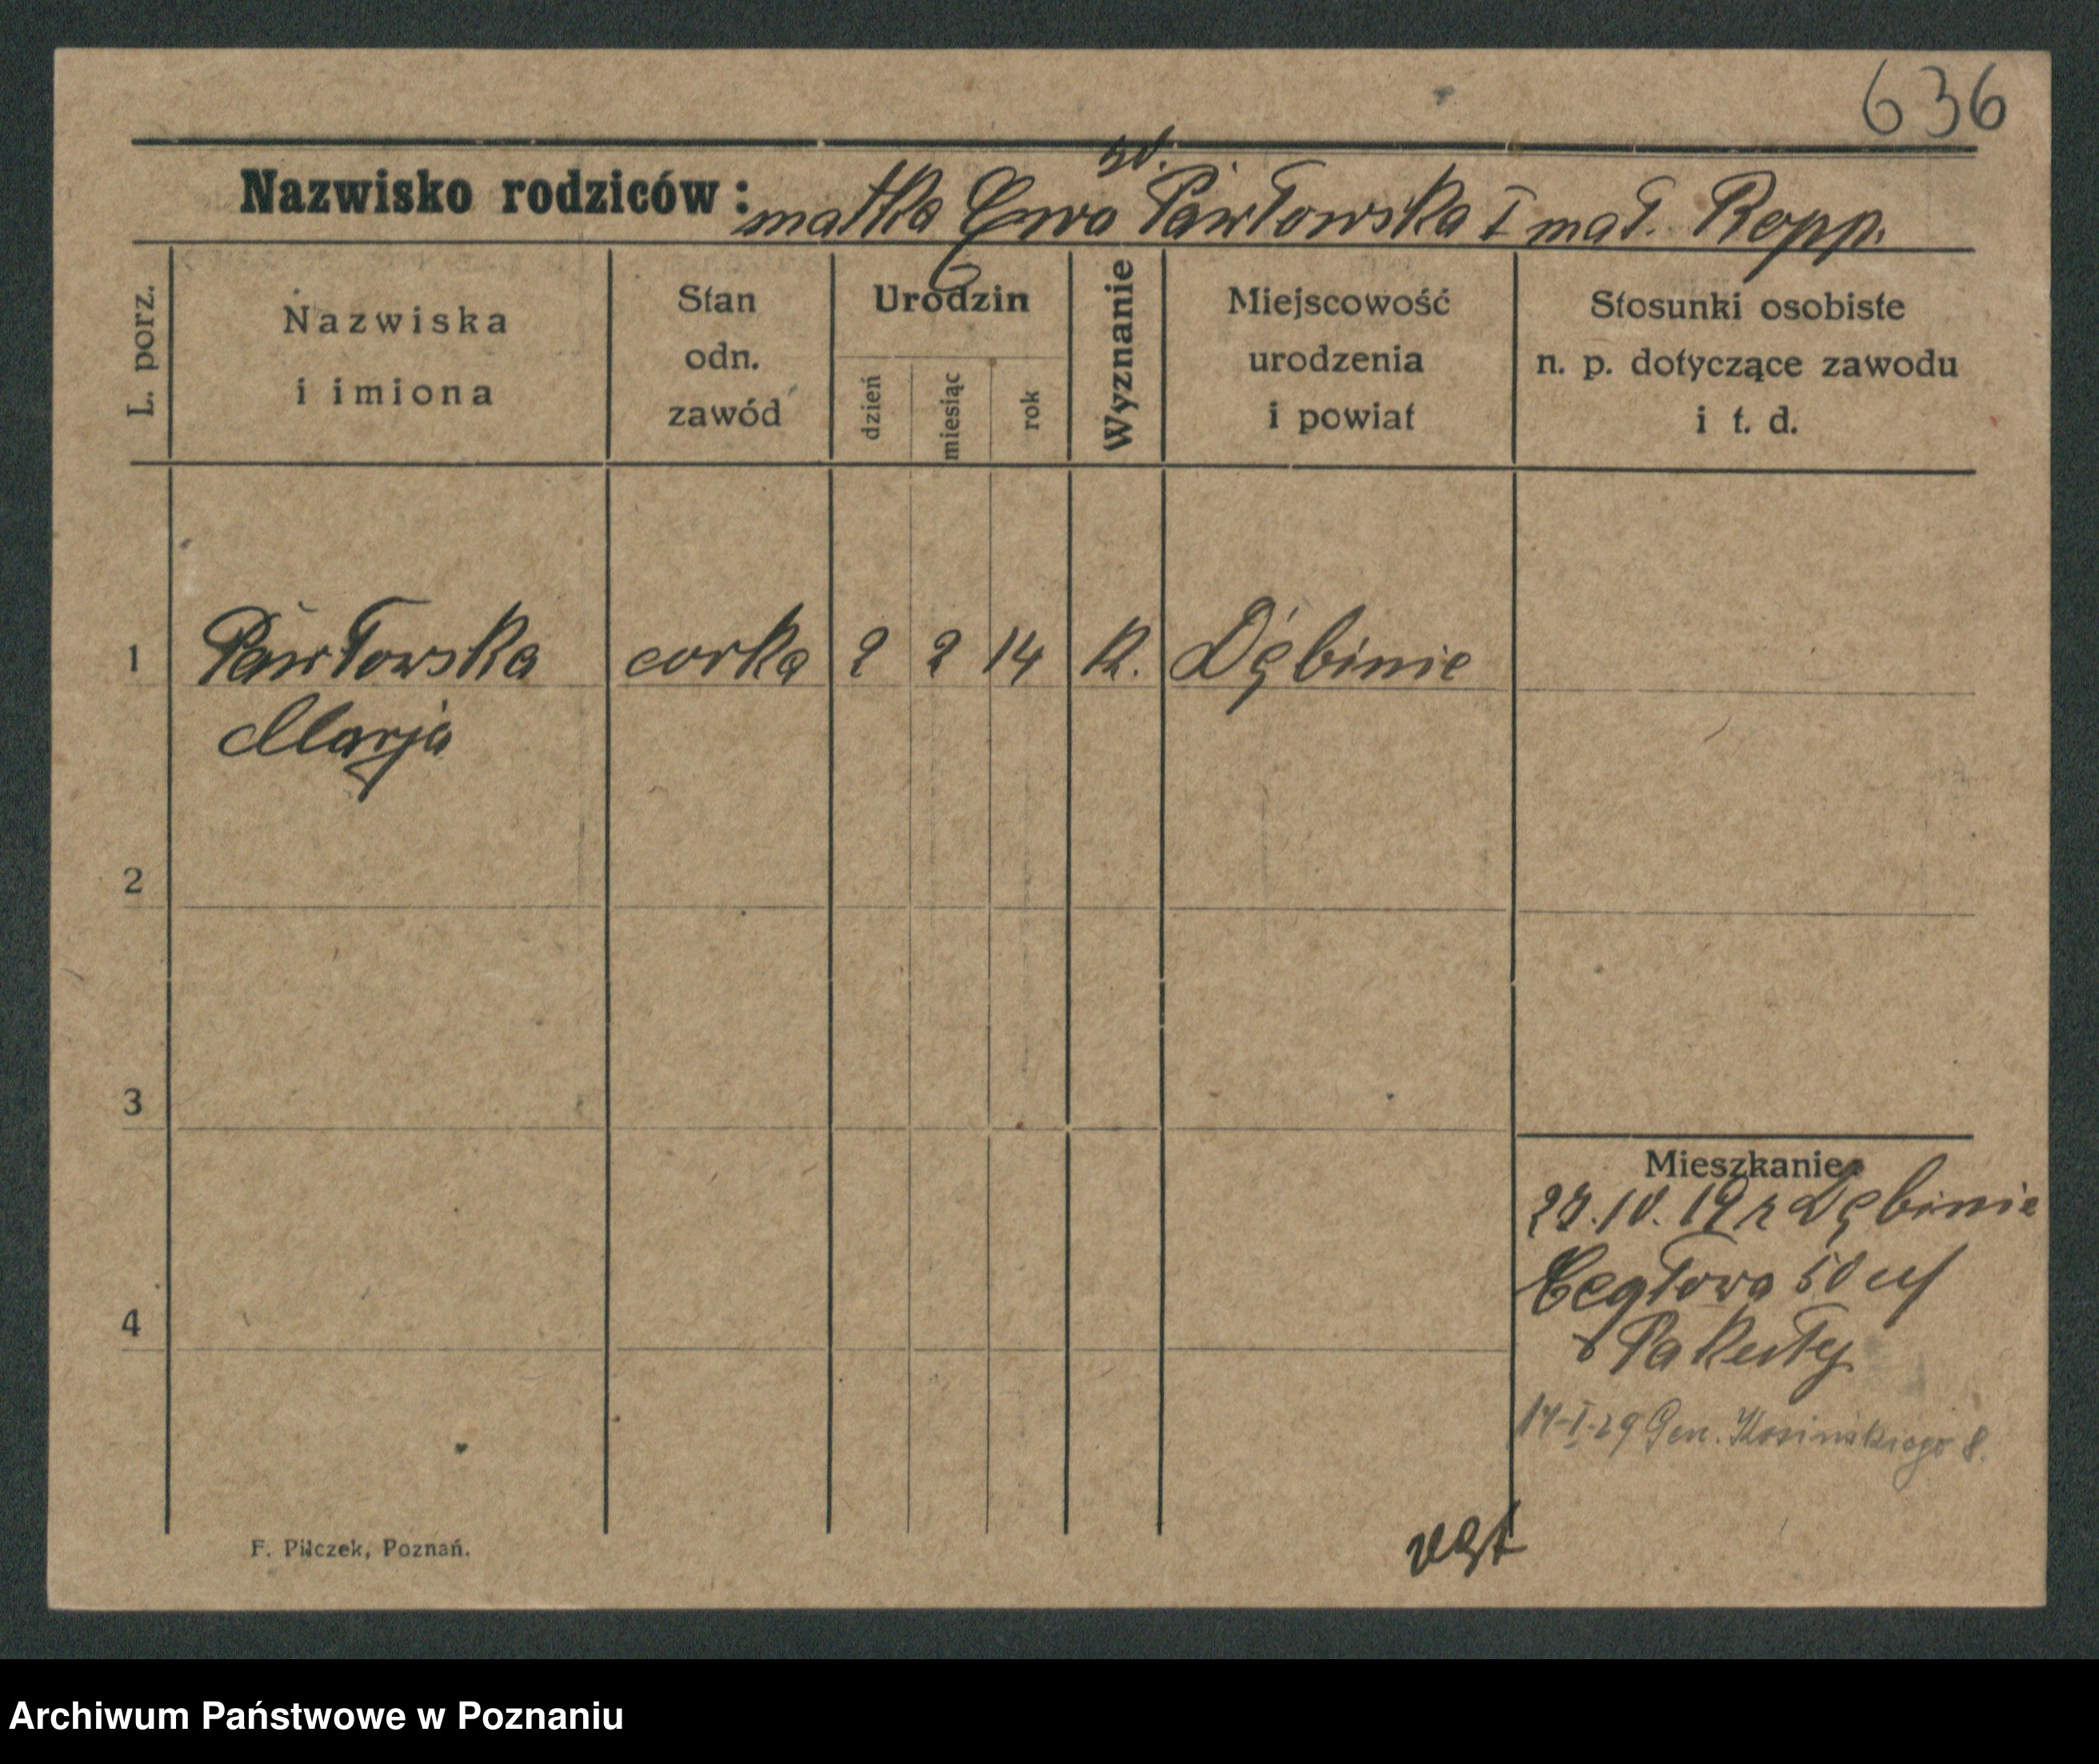 636
zd.
Nazwisko rodziców: matka Ewa Pawłowska I mał. Ropp.
L. porz.
Nazwiska
i imiona
Stan
odn.
zawód
Urodzin
dzień
miesiąc
rok
Wyznanie
Miejscowość
urodzenia
i powiat
Stosunki osobiste
n. p. dotyczące zawodu
i t. d.
1 Pawłowska corka 2 2 14 K. Dębinie
Marja
2
3
4
Mieszkanie
27.10.19 r Dębinie
Cegłowa 50
Pakuły
14-I-29 Gen. Kosińskiego 8.
F. Pilczek, Poznań.
Archiwum Państwowe w Poznaniu